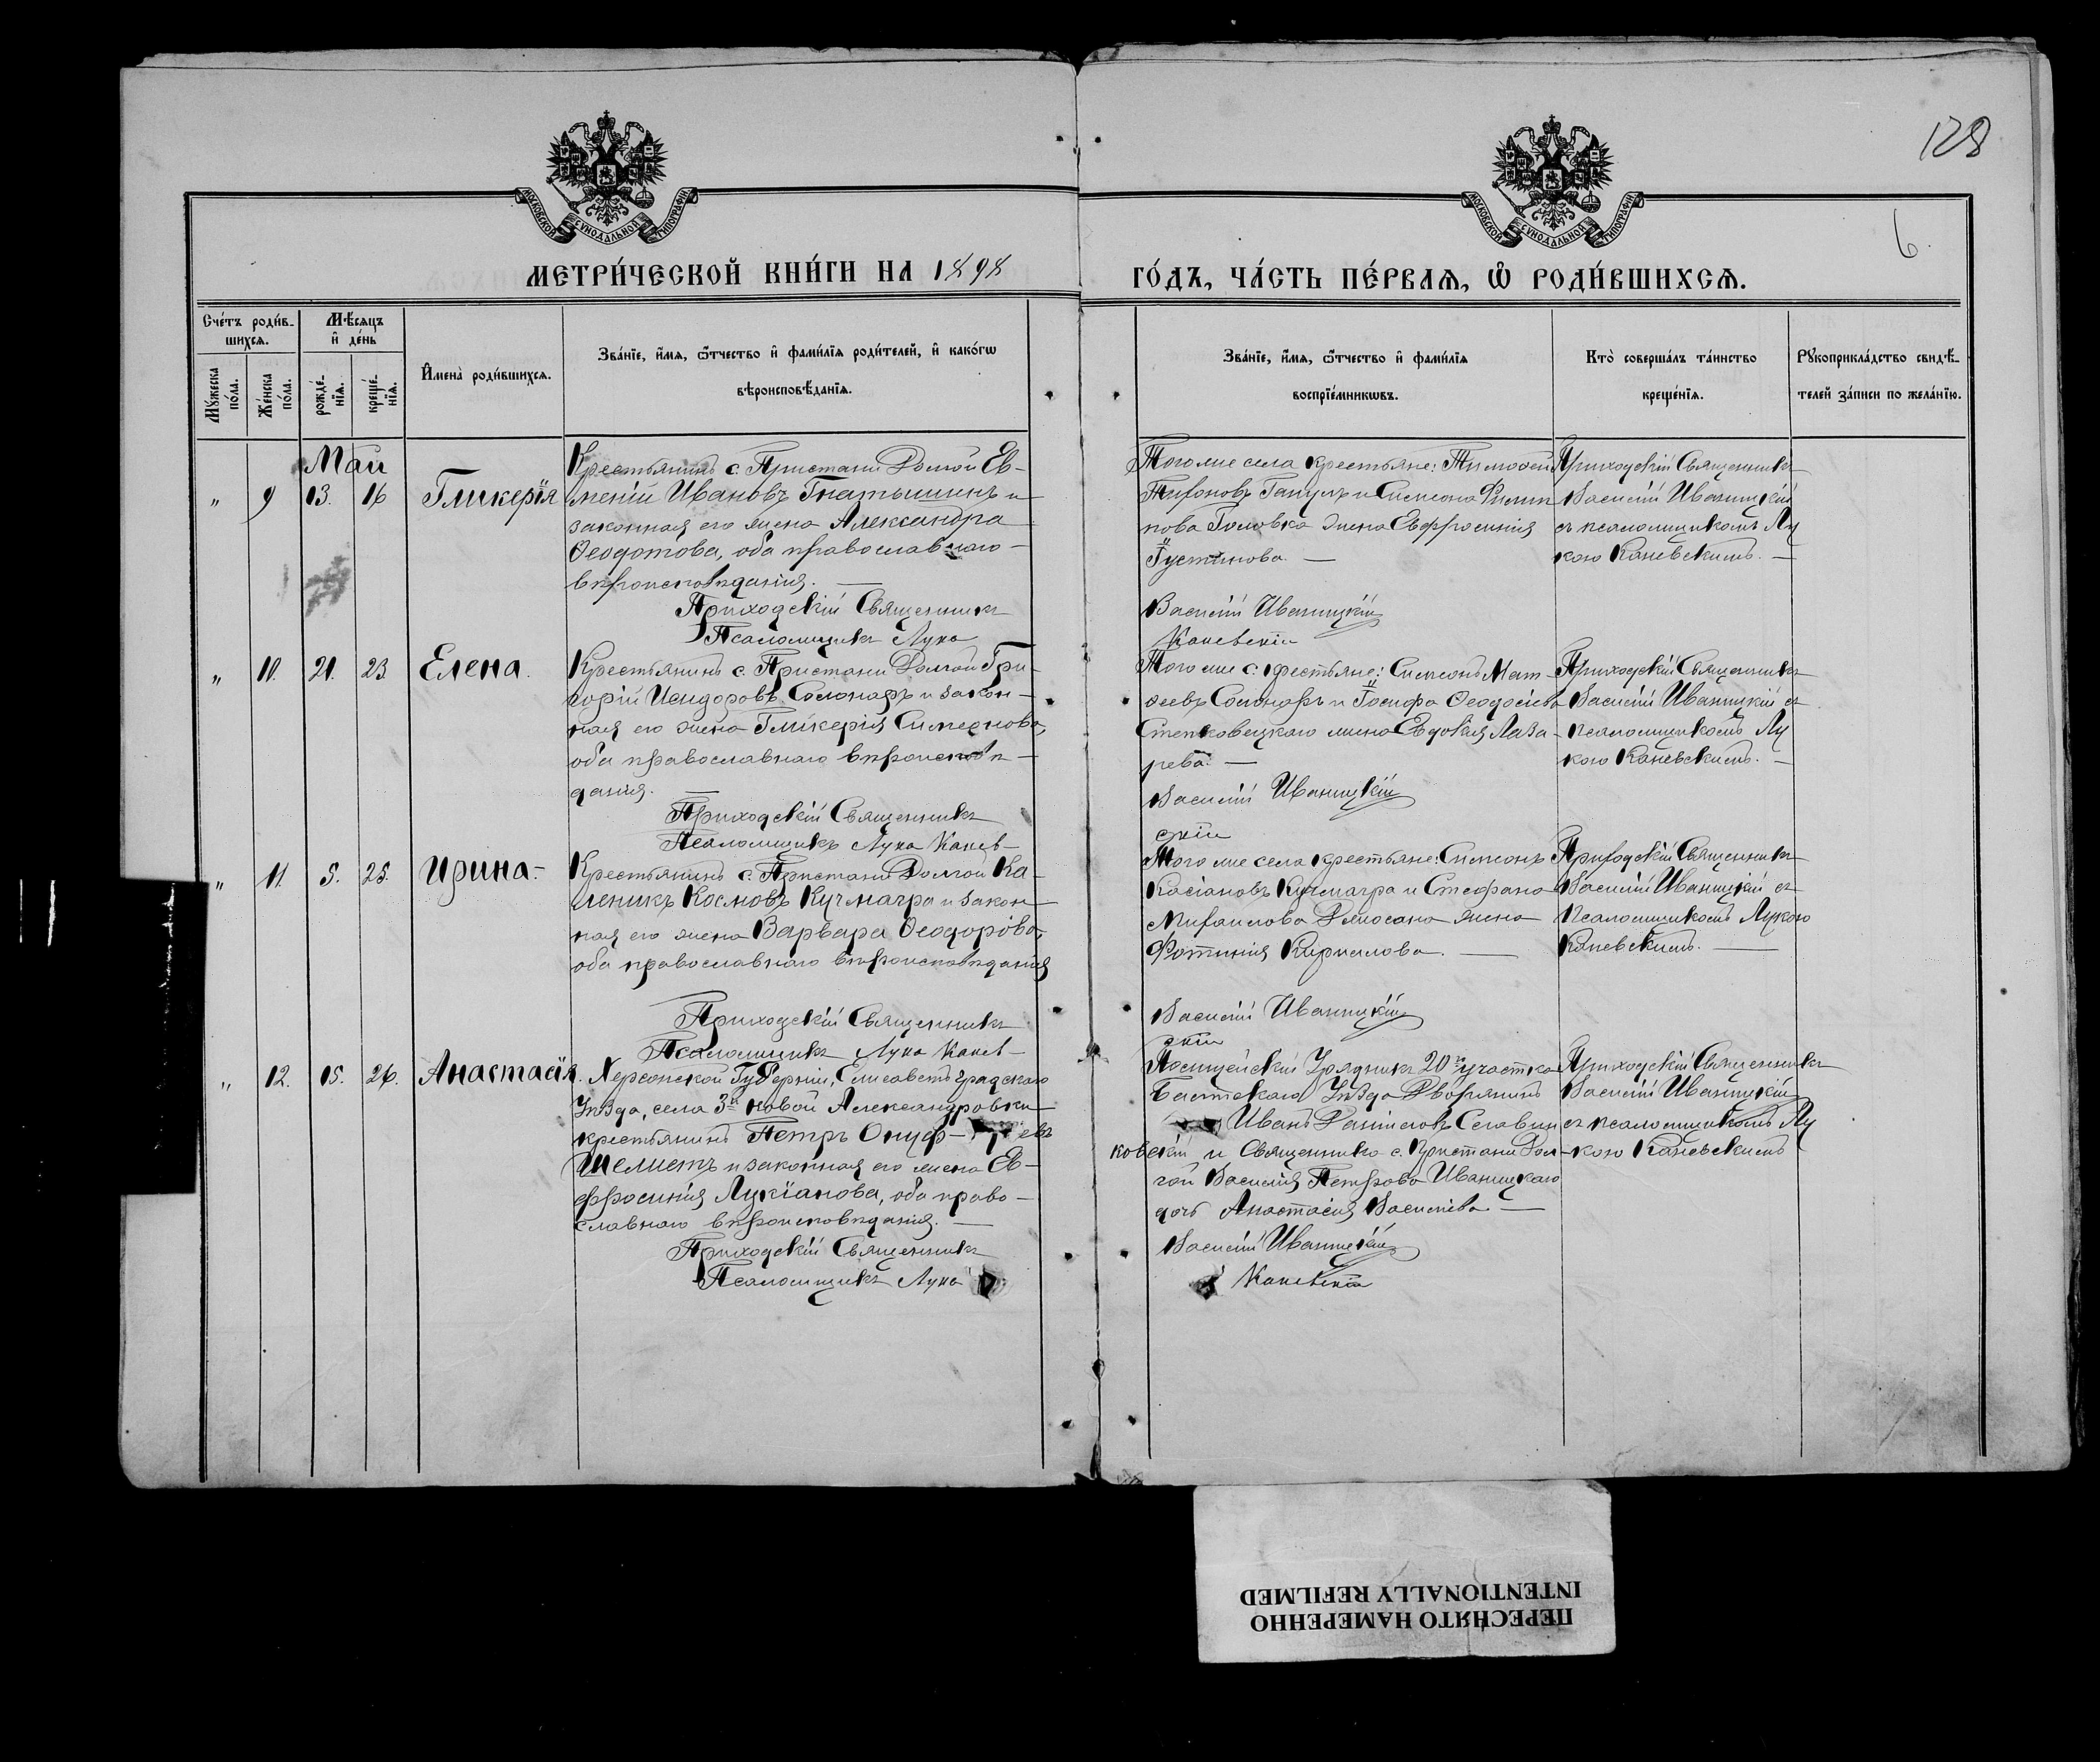 128
6.
МОСКОВСКОЙ СѴНОДАЛЬНОЙ ТИПОГРАФІИ
МОСКОВСКОЙ СѴНОДАЛЬНОЙ ТИПОГРАФІИ
МЕТРИ́ЧЕСКОЙ КНИ́ГИ НА 1898
ГО́ДЪ, ЧА́СТЬ ПЕ́РВАѦ, Ѡ РОДИ́ВШИХСѦ.
Сче́тъ роди́в-
шихсѧ.
Мꙋ́жеска по́ла.
Же́нска по́ла.
Мѣ́сѧцъ
и҆ де́нь
рожде́-
нїѧ.
креще́-
нїѧ.
И҆мена̀ роди́вшихсѧ.
Зва́нїе, и҆́мѧ, ѻ҆́тчество и҆ фами́лїѧ роди́телей, и҆ како́гѡ
вѣроисповѣ́данїѧ.
Зва́нїе, и҆́мѧ, ѻ҆́тчество и҆ фами́лїѧ
воспрїе́мникѡвъ.
Кто̀ соверша́лъ та́инство
креще́нїѧ.
Рꙋкоприкла́дство свидѣ́-
телей за́писи по жела́нїю.
Май
„ 9 13. 16 Гликерія
Крестьянинъ с. Пристани Долгой Ев-
меній Ивановъ Гнатышинъ и
законная его жена Александра
Ѳеодотова, оба православнаго
вѣроисповѣданія.
Приходскій Священникъ
Псаломщикъ Лука
Того же села крестьяне: Тимоѳей
Тихоновъ и Симеона Филип
пова Головка жена Евфросинія
Іустинова.
Василій Иваницкій
Каневскій
Приходскій Священникъ
Василій Иваницкій
съ псаломщикомъ Лу
кою Каневскимъ.
„ 10. 21. 23. Елена.
Крестьянинъ с. Пристани Долгой Гри-
горій Исидоровъ Солонарь и закон-
ная его жена Гликерія Симеонова,
оба православнаго вѣроисповѣ-
данія.
Приходскій Священникъ
Псаломщикъ Лука Канев-
Того же с. крестьяне: Симеонъ Мат-
ѳеевъ Солонарь и Іосифа Ѳеодосіева
Степковецкаго жена Евдокія Лаза-
рева.
Василій Иваницкій
скій
Приходскій Священникъ
Василій Иваницкій съ
псаломщикомъ Лу
кою Каневскимъ.
„ 11. 5. 25. Ирина.
Крестьянинъ с. Пристани Долгой Ка-
леникъ Космовъ Кучмагра и закон-
ная его жена Варвара Ѳеодорова,
оба православнаго вѣроисповѣданія
Приходскій Священникъ
Псаломщикъ Лука Канев-
Того же села крестьяне: Симеонъ
Касіановъ Кучмагра и Стефана
Михаилова жена
Фотинія Кирилова.
Василій Иваницкій
скій
Приходскій Священникъ
Василій Иваницкій съ
Псаломщикомъ Лукою
Каневскимъ.
„ 12. 15. 26. Анастасія.
Херсонской Губерніи, Елисаветградскаго
Уѣзда, села 3й Новой Александровки
крестьянинъ Петръ Онуф- евъ
Шелестъ и законная его жена Ев-
фросинія Лукіанова, оба право-
славнаго вѣроисповѣданія.
Приходскій Священникъ
Псаломщикъ Лука
Полицейскій Урядникъ 20го участка
Балтскаго Уѣзда Дворянинъ
Иванъ Даниловъ
ковскій и Священника с. Пристани Дол-
гой Василія Петрова Иваницкаго
дочь Анастасія Василіева
Василій Иваницкій
Каневскій
Приходскій Священникъ
Василій Иваницкій
съ псаломщикомъ Лу
кою Каневскимъ
ПЕРЕСНЯТО НАМЕРЕННО
INTENTIONALLY REFILMED